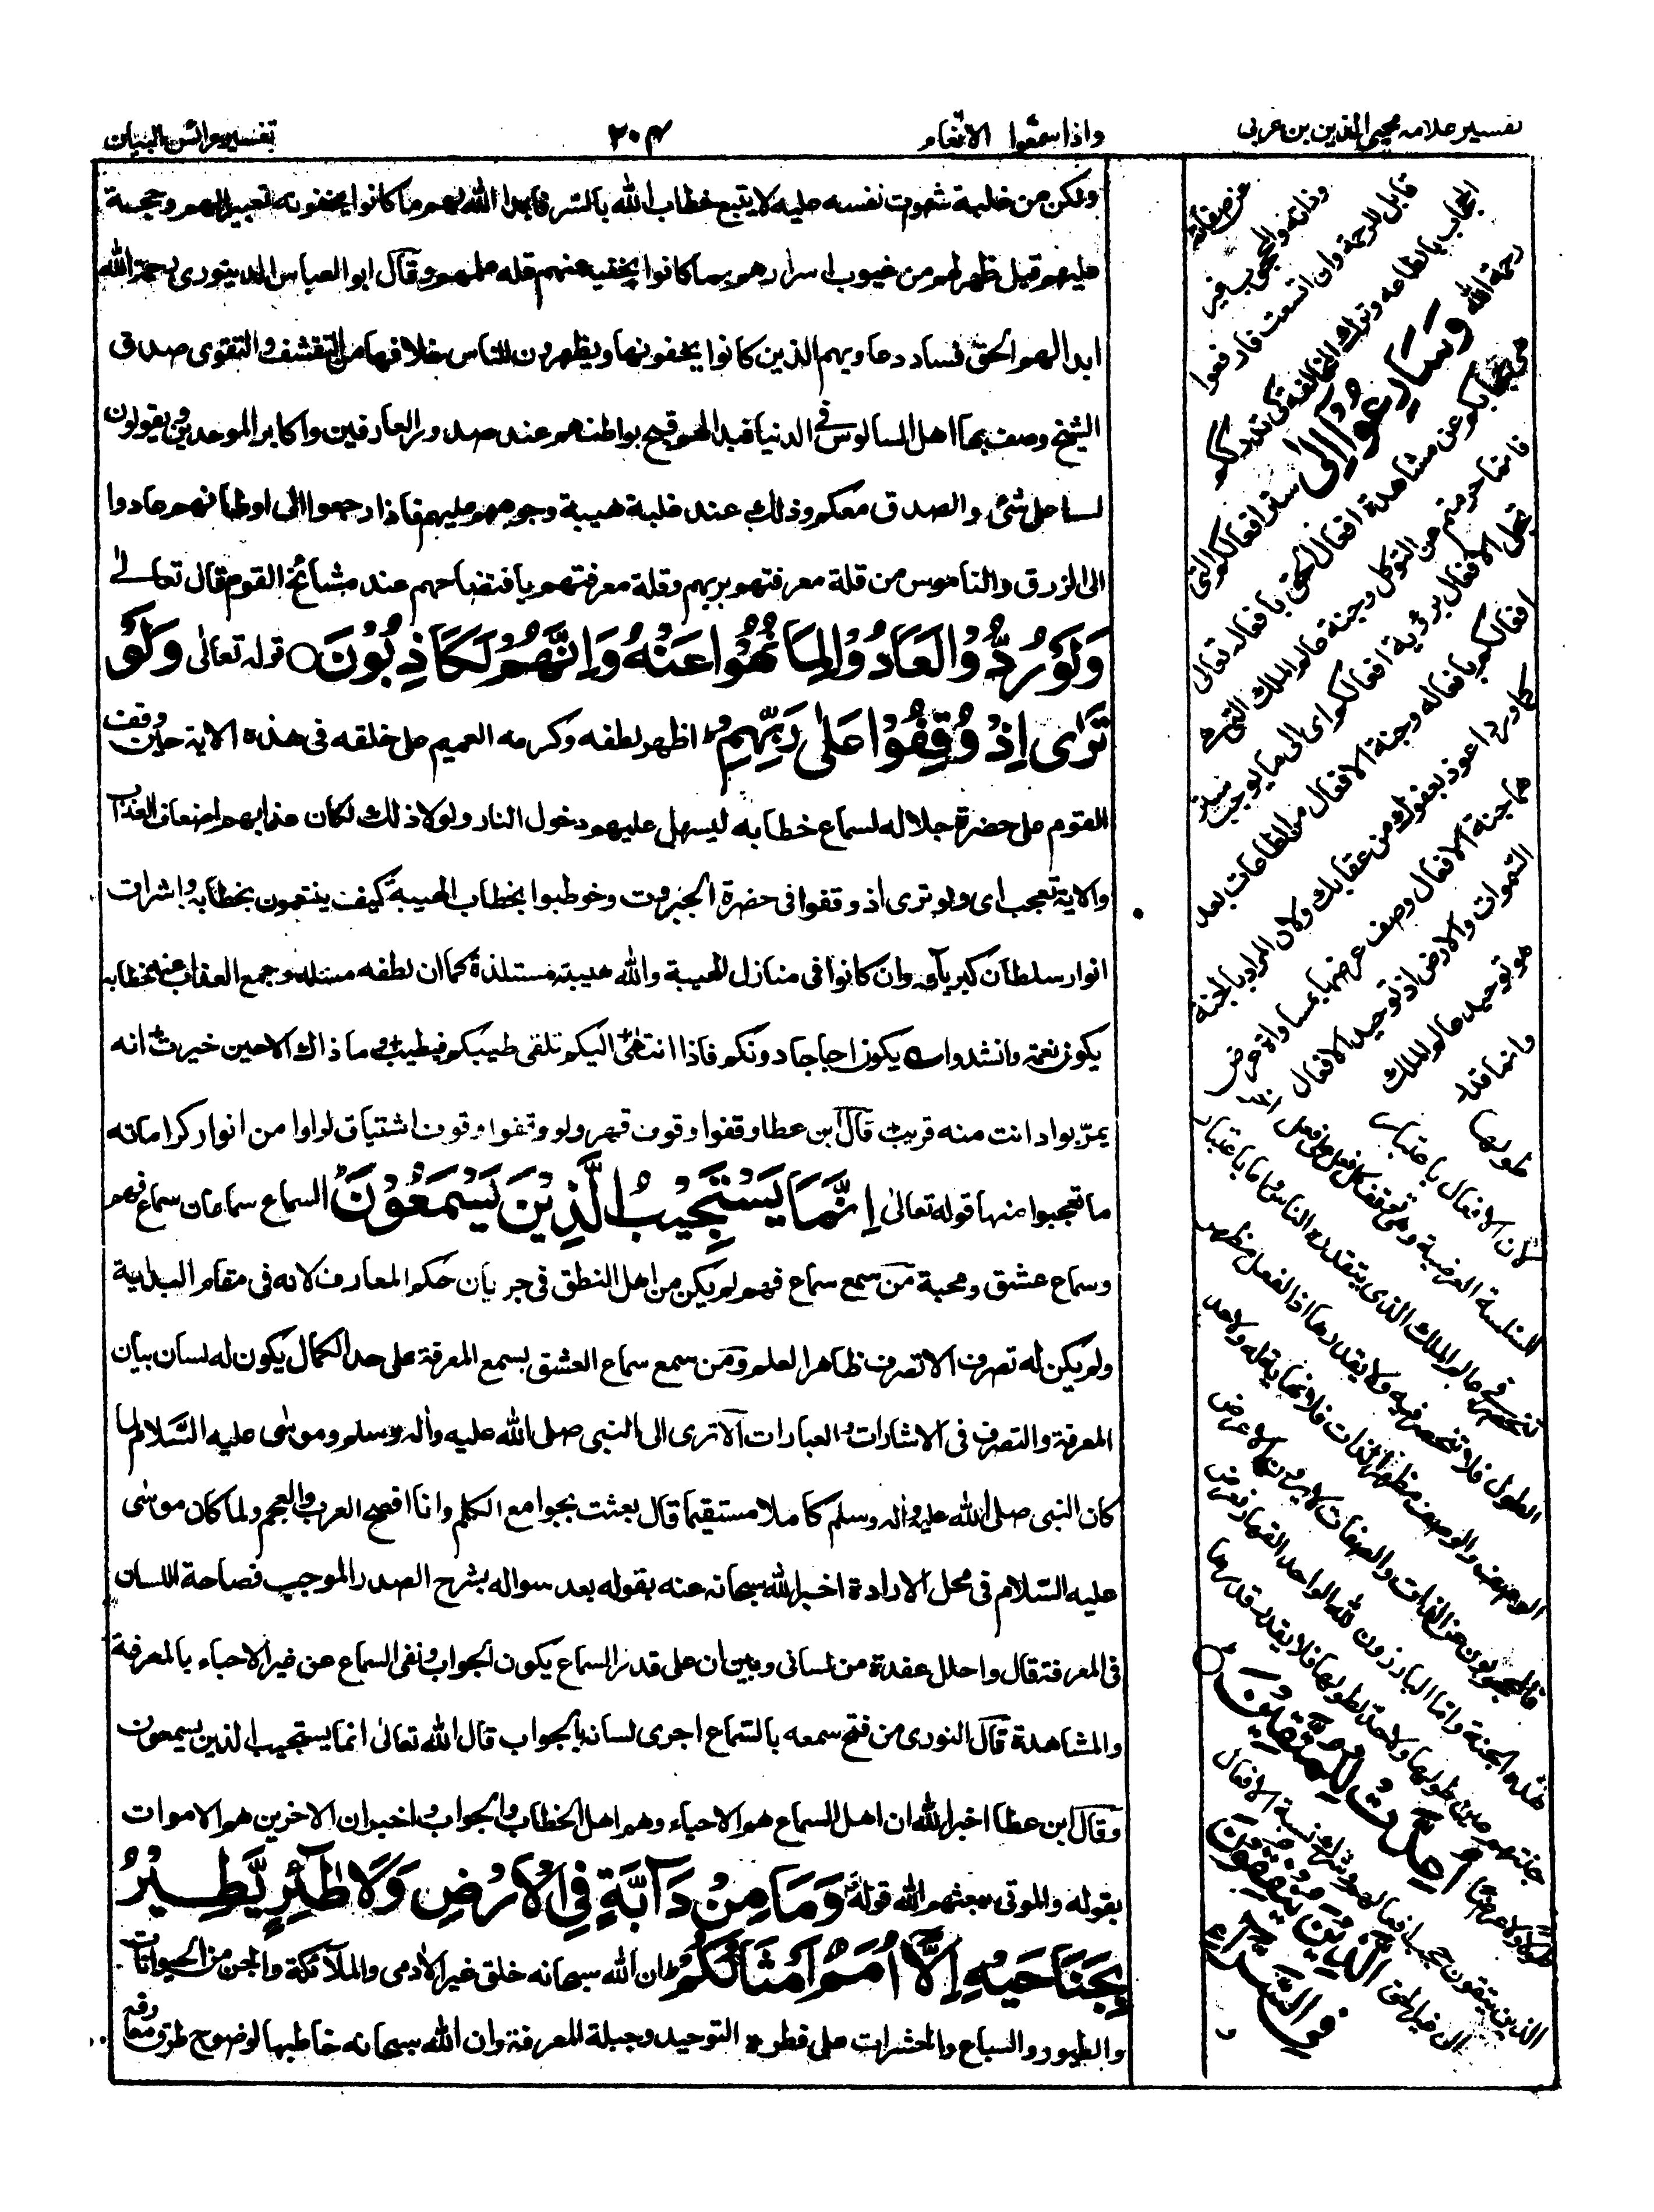 تفسير علامه محيى الدين بن عربى
واذا سمعوا الانعام
٢٠٤
تفسير عرائس البيان
ولكن من غلبة شهوت نفسه عليه لا يتبع خطاب الله بالسر فابدا الله لهم ما كانوا يخفونه تعييرا لهم وحجة
عليهم قبل ظهر لهم من غيوب اسرارهم بما كانوا يخفيه عنهم قلة علمهم وقال ابو العباس الدينورى رحمة الله
ابدا لهم الحق فساد دعاويهم الذين كانوا يخفونها ويظهرون للناس خلافها من التقشف والتقوى صدق
الشيخ وصف بها اهل السالوس فى الدنيا فبدا لهم قبح بواطنهم عند صدور العارفين واكابر الموحدين ويقولون
لسا على شئ والصدق معكم وذلك عند غلبة هيبة وجوههم عليهم فاذا رجعوا الى اوطانهم عادوا
الى الزرق والناموس من قلة معرفتهم بربهم وقلة معرفتهم بافتضاحهم عند مشائخ القوم قال تعالى
وَلَوْ رُدُّوْا لَعَادُوْا لِمَا نُهُوْا عَنْهُ وَاِنَّهُمْ لَكَاذِبُوْنَ ○ قوله تعالى وَلَوْ
تَرَاى اِذْ وُقِفُوْا عَلٰى رَبِّهِمْ اظهر لطفه وكرمه العميم على خلقه فى هذه الاية حين وقف
القوم على حضرة جلاله لسماع خطابه ليسهل عليهم دخول النار ولولا ذلك لكان عذابهم اضعاف العذاب
والاية تعجب اى ولو ترى اذ وقفوا فى حضرة الجبروت وخوطبوا بخطاب الهيبة كيف ينتعمون بخطابه واشراق
انوار سلطان كبريآئه وان كانوا فى منازل الهيبة والله هيبته مستلذة كما ان لطفه مسئله وجمع العذاب عنه بخطابه
يكون نعمة وانشدوا يكون اجاجا دونكم فاذا انتهى اليكم تلقى طيبكم فيطيب وما ذاك الا حين خبرت انه
يمرّ بواد انت منه قريب قال ابن عطا وقفوا وقوف قهر ولو وقفوا وقوف اشتياق لراوا من انوار كراماته
ما تعجبوا منها قوله تعالى اِنَّمَا يَسْتَجِيْبُ الَّذِيْنَ يَسْمَعُوْنَ السماع سماعان سماع فهم
وسماع عشق ومحبة مَن سمع سماع فهم لم يكن من اهل النطق فى جريان حكم المعارف لانه فى مقام البداية
ولم يكن له تصرف الا تصرف ظاهر العلم ومَن سمع سماع العشق بسمع المعرفة على حد الكمال يكون له لسان بيان
المعرفة والتصرف فى الاشارات والعبارات الا ترى الى النبى صلى الله عليه واله وسلم وموسى عليه السّلام لما
كان النبى صلى الله عليه واله وسلم كاملا مستقيما قال بعثت بجوامع الكلم وانا افصح العرب والعجم ولما كان موسى
عليه السّلام فى محل الارادة اخبر الله سبحانه عنه بقوله بعد سواله بشرح الصدر الموجب فصاحة اللسان
فى المعرفة قال واحلل عقدة من لسانى وبين ان على قدر السماع يكون الجواب ونفى السماع عن غير الاحياء بالمعرفة
والمشاهدة قال النورى من فتح سمعه بالسّماع اجرى لسانه بالجواب قال الله تعالى انما يستجيب الذين يسمعون
وقال ابن عطا اخبر الله ان اهل السماع هم الاحياء وهم اهل الخطاب والجواب واخبر ان الاخرين هم الاموات
بقوله والموتى يبعثهم الله قوله وَمَا مِنْ دَآبَّةٍ فِى الْاَرْضِ وَلَا طٰٓئِرٍ يَّطِيْرُ
بِجَنَاحَيْهِ اِلَّآ اُمَمٌ اَمْثَالُكُمْ ان الله سبحانه خلق غير الادمى والملآئكة والجن من الحيوانات
والطيور والسباع والحشرات على فطرة التوحيد وجبلة المعرفة وان الله سبحانه خاطبها لوضوح طرق معارفه
عن صفاته
وذاته والمحجوب غير
قابل للرحمة وان اتسعت فارفعوا
الحجاب بالطاعة وترك المخالفة كى تدرككم
رحمة الله وَسَارِعُوْٓا اِلٰى ستر افعالكم التى
هى حجابكم عن مشاهدة افعال الحق بافعاله تعالى
فانما حرمتم عن التوكل وجنة عالم الملك التى هى
تجلى الافعال برؤية افعالكم اى الى ما يوجب ستر
افعالكم بافعاله وجنة الافعال من الطاعات بعد
كما ورد اعوذ بعفوك من عقابك ولان المراد بالجنة
هنا جنة الافعال وصف عرضها بمساواة عرض
السموات والارض اذ توحيد الافعال
هو توحيد عالم الملك
وانما قدر
طولها
لان الافعال باعتبار
السلسلة العرضية وهى توقف كل فعل على فعل اخر
تنحصر فى عالم الملك الذى يتقدره الناس واما باعتبار
الطول فلا تنحصر فيه ولا يقدرها اذ الفعل مظهر
الوصف والوصف مظهر الذات فلا نهاية له ولا حد
فالمحجوبون عن الذات والصفات لا يرون الا عرض
هذه الجنة واما البارزون لله الواحد القهار فعرض
جنتهم عين طولها ولا حد لطولها فلا يقدر قدرها
طولا ولا عرضا اُعِدَّتْ لِلْمُتَّقِيْنَ ○
الذين يتقون حجب افعالهم وترك نسبة الافعال
الى غير الحق الَّذِيْنَ يُنْفِقُوْنَ
فِى السَّرَّآءِ